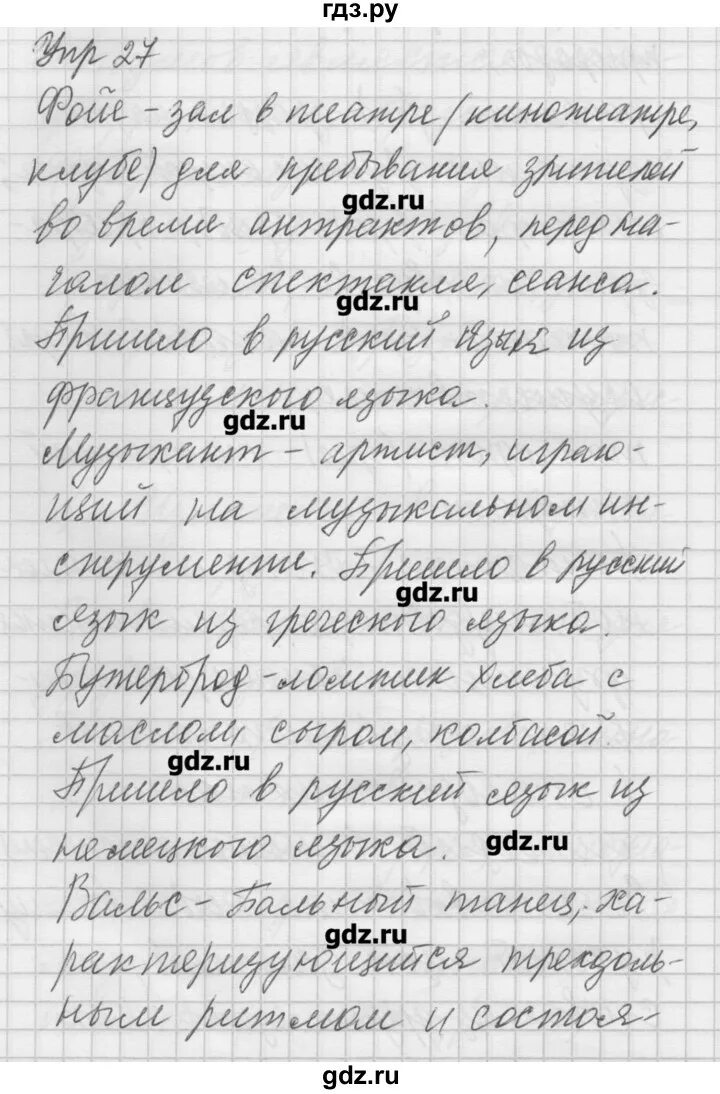 гдз.ру
Упр 27
Фойе - зал в театре (кинотеатре,
клубе) для пребывания зрителей
gdz.ru
во время антрактов, перед на-
чалом спектакля, сеанса.
gdz.ru
Пришло в русский язык из
французского языка.
gdz.ru
Музыкант - артист, играю-
щий на музыкальном ин-
струменте. Пришло в русский
gdz.ru
язык из греческого языка.
Бутерброд - ломтик хлеба с
маслом, сыром, колбасой.
gdz.ru
Пришло в русский язык из
немецкого языка.
gdz.ru
Вальс - Бальный танец, ха-
gdz.ru
рактеризующийся трехдоль-
ным ритмом и состоя-
gdz.ru